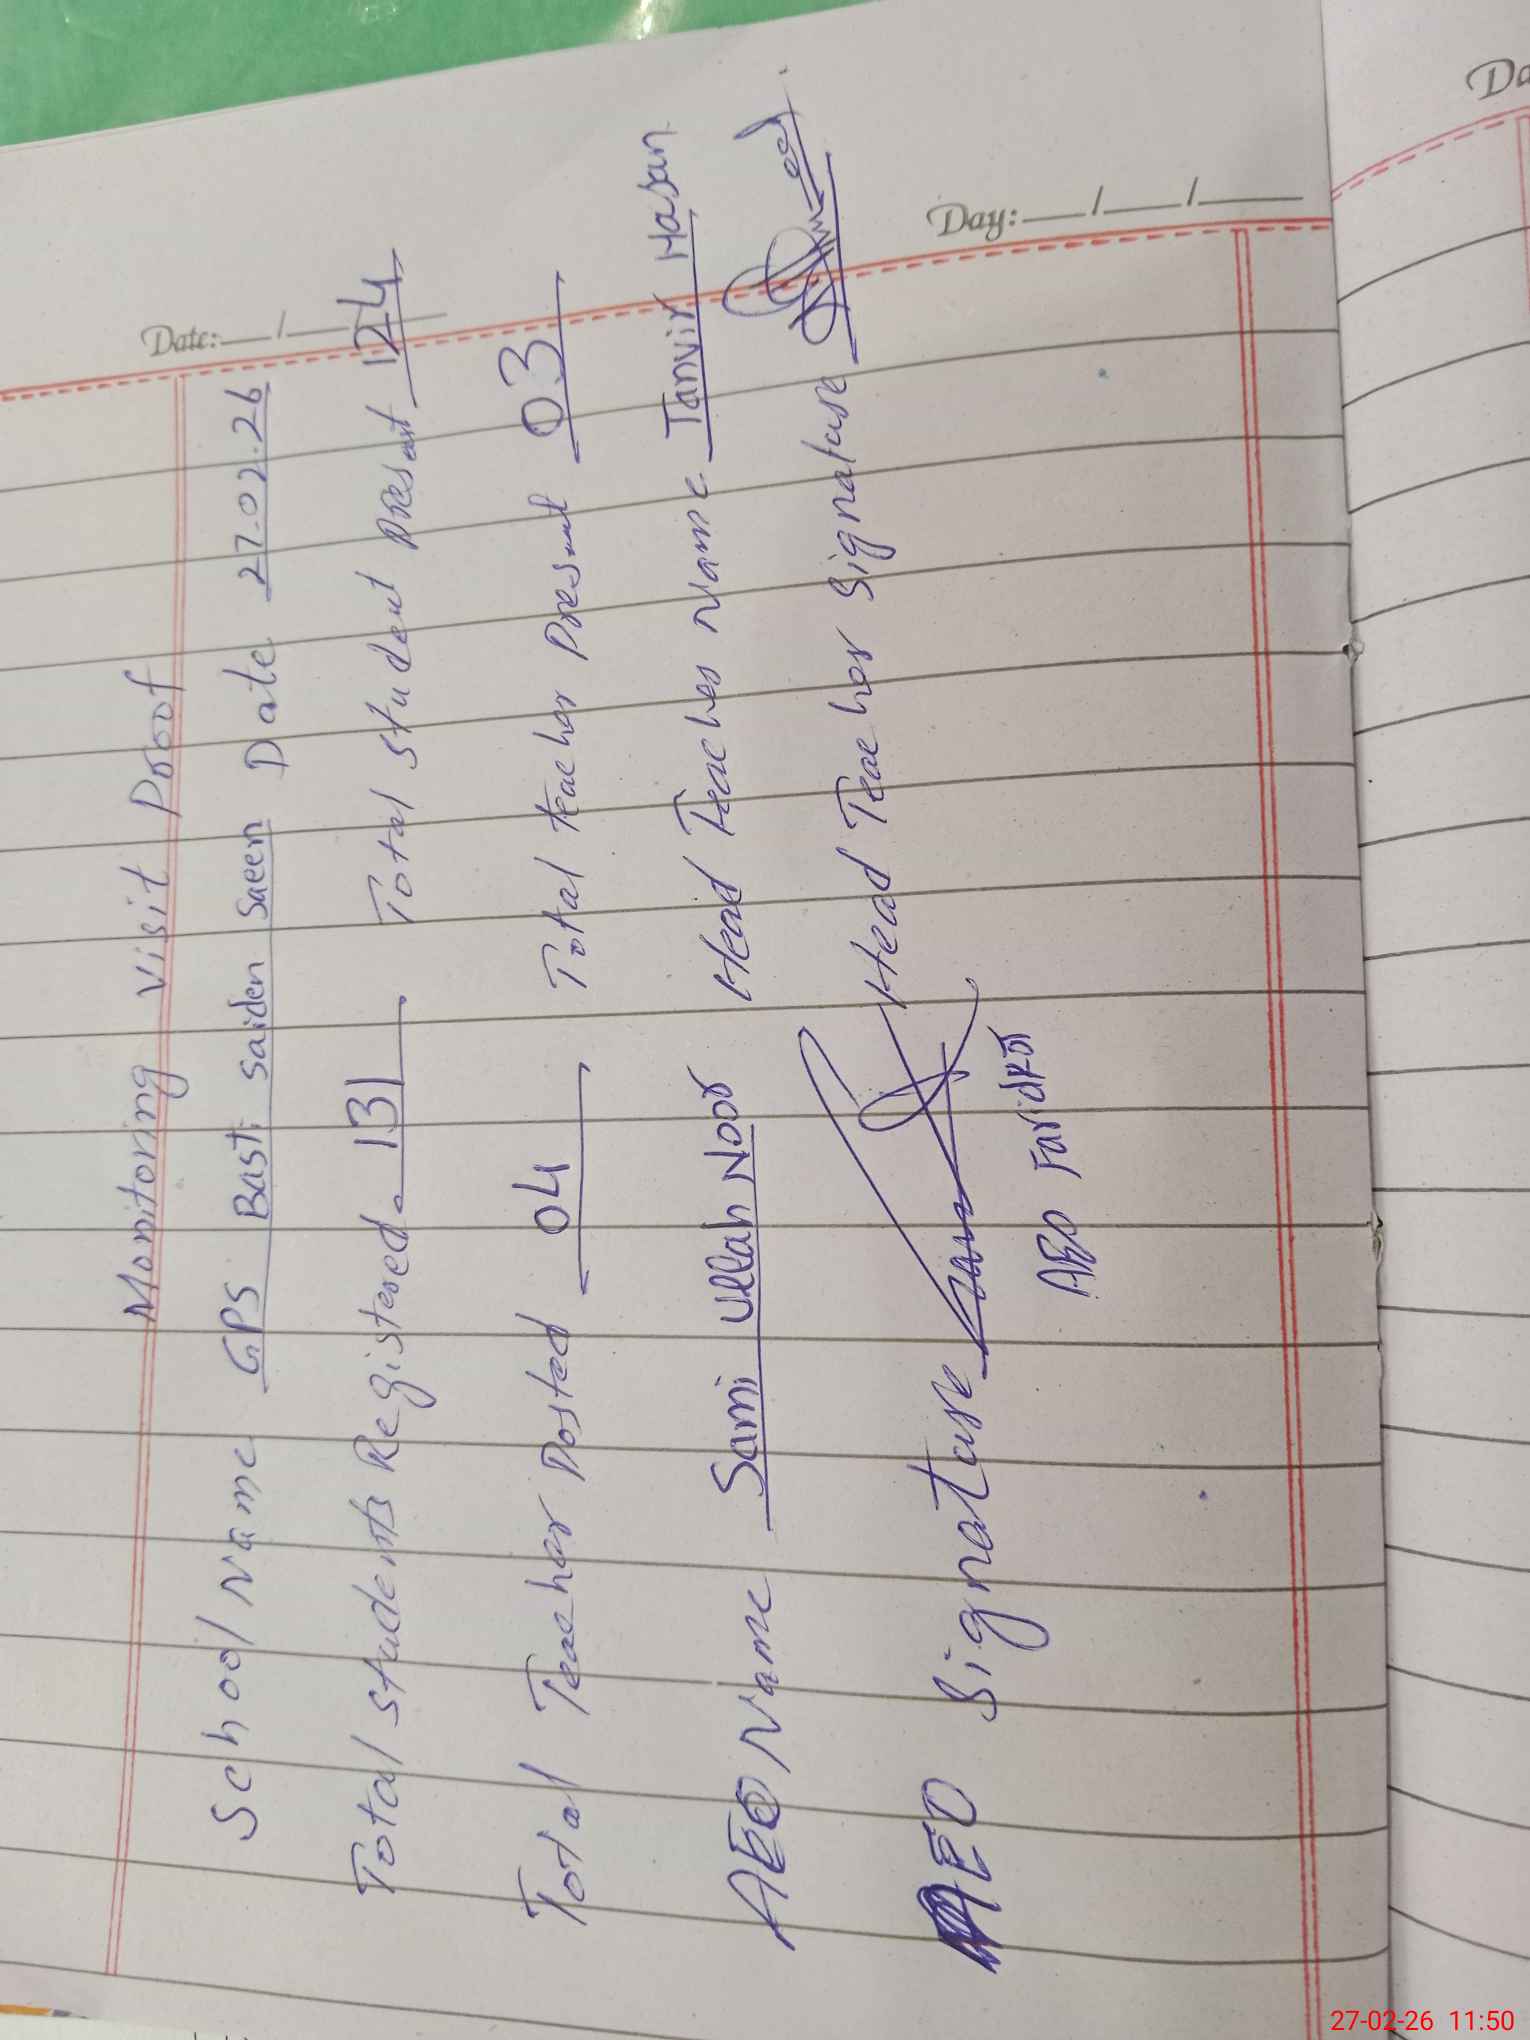 Date: __/__/__
Monitoring Visit Proof
School Name GPS Basti Saiden Saeen Date 27.02.26
Total students Registered 131 Total student present 124
Total Teacher Posted 04 Total teacher Present 03
AEO Name Sami Ullah Noor Head Teacher Name Tanvir Hasan
AEO Signature Head Teacher Signature
AEO Faridkot
Day: __/__/__
Da
27-02-26 11:50